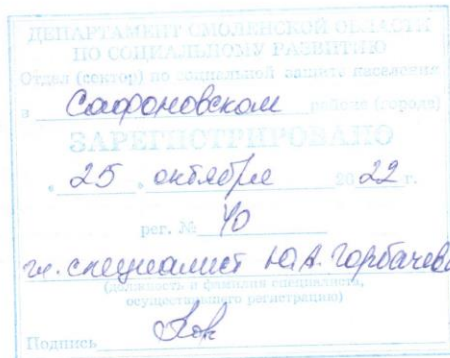 ДЕПАРТАМЕНТ СМОЛЕНСКОЙ ОБЛАСТИ
ПО СОЦИАЛЬНОМУ РАЗВИТИЮ
Отдел (сектор) по социальной защите населения
в Сафоновском районе (городе)
ЗАРЕГИСТРИРОВАНО
„ 25 „ октября 2022 г.
рег. № 40
гл. специалист Ю.А. Горбачева
(должность и фамилия специалиста,
осуществившего регистрацию)
Подпись